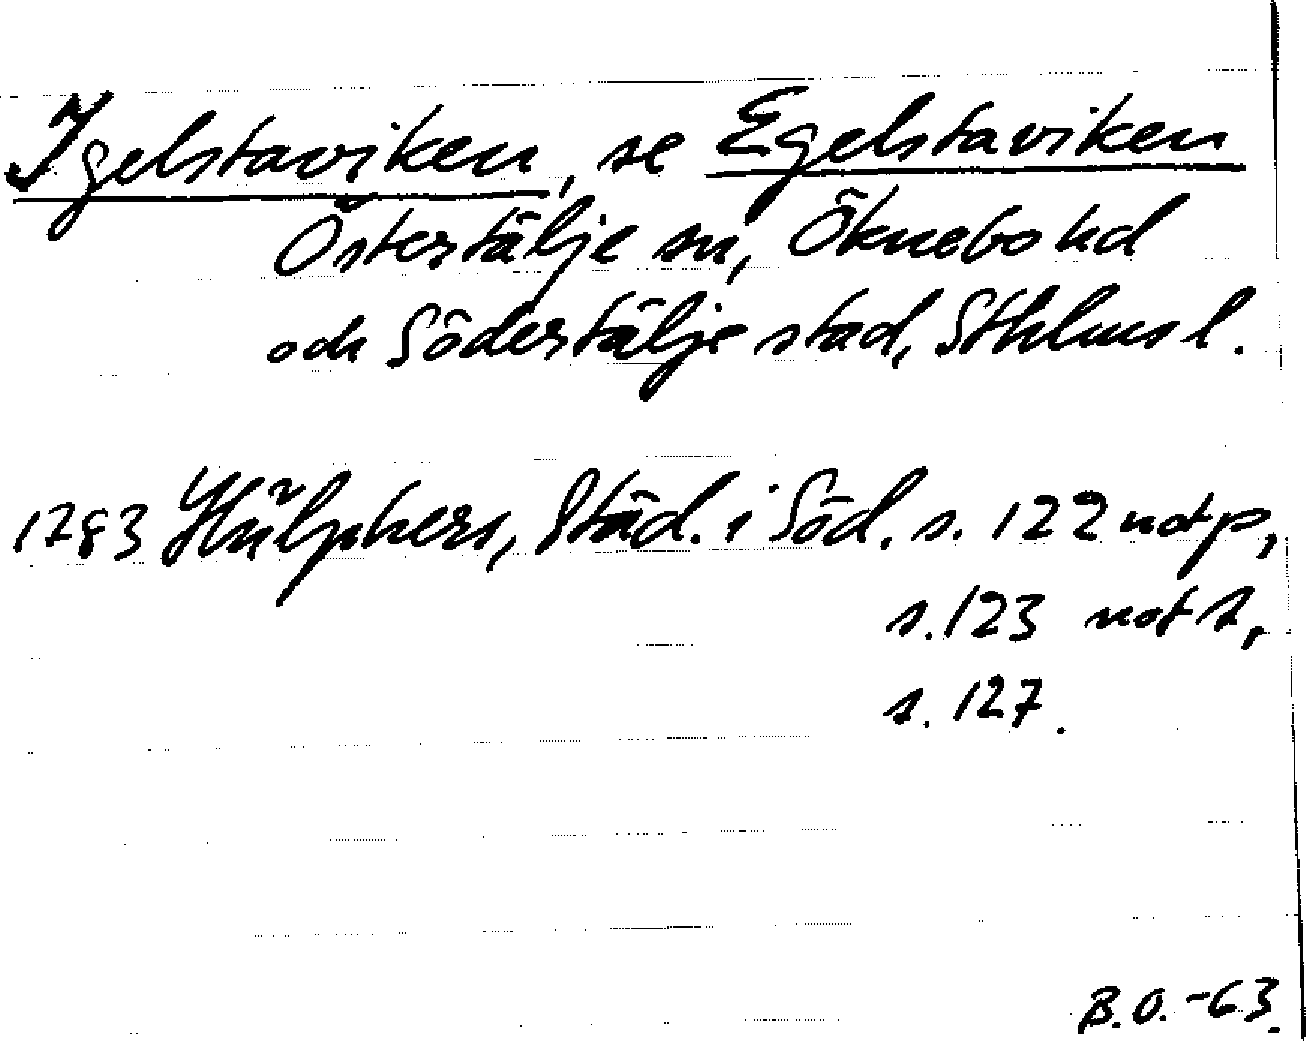 Igelstaviken, se Egelstaviken
Östertälje sn, Öknebo hd
och Södertälje stad, Sthlms l.
1783 Hülphers, Städ. i Söd. s. 122 not p,
s. 123 not s,
s. 127.
B.O.-63.